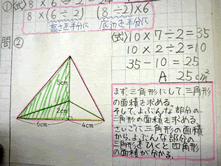 ① (式) 8×(6÷2) (8÷2)×6
高さを半分に 底辺を半分に
問②
(式) 10×7÷2=35
10×2÷2=10
35-10=25
A 25cm²
6cm 4cm
まず三角形にして、三角形
の面積を求める。
そして、よぶんな部分の
三角形の面積を求める。
さいごに、三角形の面積
から、よぶんな部分の
三角形をひくと四角形
の面積が分かる。